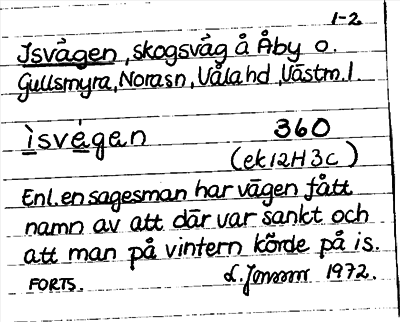 1-2
Isvägen, skogsväg å Åby o.
Gullsmyra, Norasn, Våla hd, Västm.l.
ìsvégan 360
(ek 12H 3c)
Enl. en sagesman har vägen fått
namn av att där var sankt och
att man på vintern körde på is.
FORTS. L. Jonsson 1972.